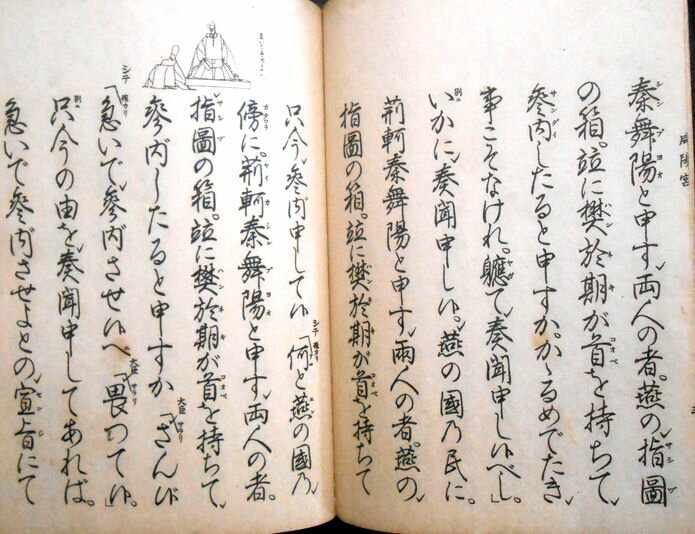 咸陽宮
秦舞陽と申す。両人の者。燕の指圖
の箱。竝に樊於期が首を持ちて
參内したると申すか。かゝるめでたき
事こそなけれ。軈て奏聞申し候べし」
いかに奏聞申し候。燕の國乃民に。
荊軻秦舞陽と申す。両人の者。燕の
指圖の箱。竝に樊於期が首を持ちて
只今參内申して候 シテ「何と燕の國乃
傍に。荊軻秦舞陽と申す。両人の者。
指圖の箱。竝に樊於期が首を持ちて
參内したると申すか 大臣「さん候
シテ「急いで參内させ候へ 大臣「畏つて候」
只今の由を奏聞申してあれば。
急いで參内させよとの宣旨にて